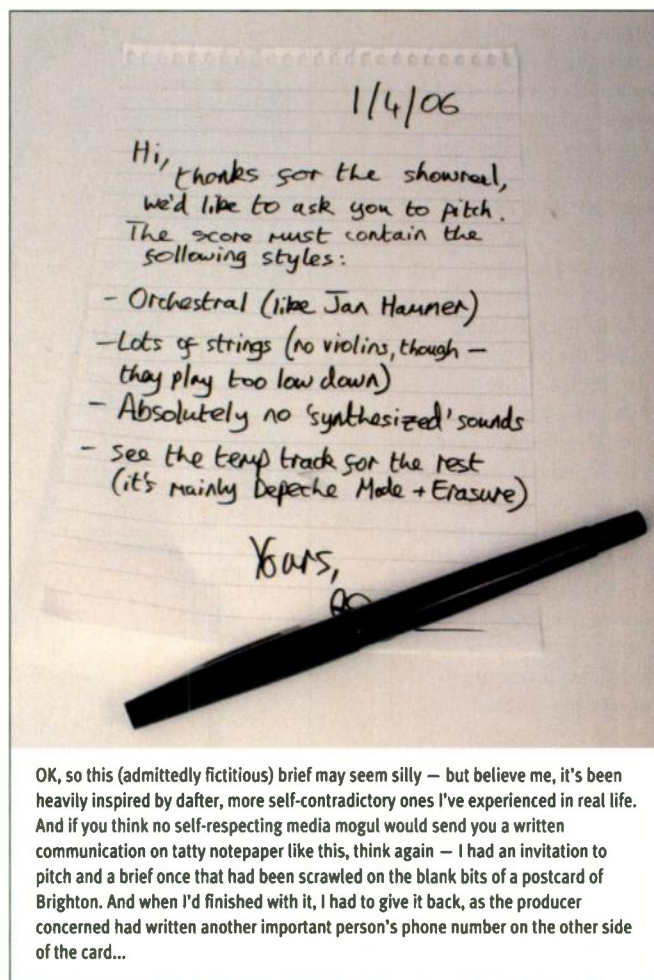 1/4/06
Hi,
thanks for the showreel,
we'd like to ask you to pitch.
The score must contain the
following styles:
- Orchestral (like Jan Hammer)
- Lots of strings (no violins, though -
they play too low down)
- Absolutely no 'synthesized' sounds
- see the temp track for the rest
(it's mainly Depeche Mode + Erasure)
Yours,
OK, so this (admittedly fictitious) brief may seem silly — but believe me, it's been
heavily inspired by dafter, more self-contradictory ones I've experienced in real life.
And if you think no self-respecting media mogul would send you a written
communication on tatty notepaper like this, think again — I had an invitation to
pitch and a brief once that had been scrawled on the blank bits of a postcard of
Brighton. And when I'd finished with it, I had to give it back, as the producer
concerned had written another important person's phone number on the other side
of the card...